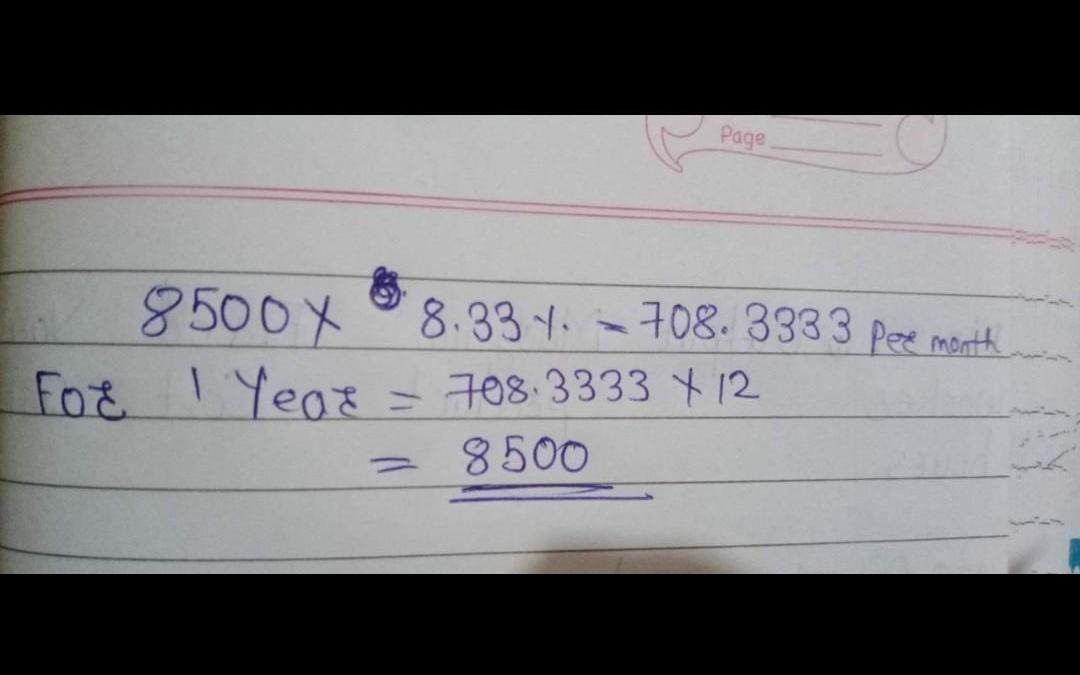 Page
8500 X 8.33 %. = 708.3333 Per month
For 1 Year = 708.3333 X 12
= 8500